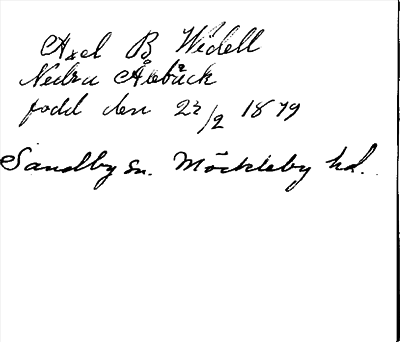 Axel B Widell
Nedra Ålebäck
född den 22/2 1879
Sandby sn. Möckleby hd.